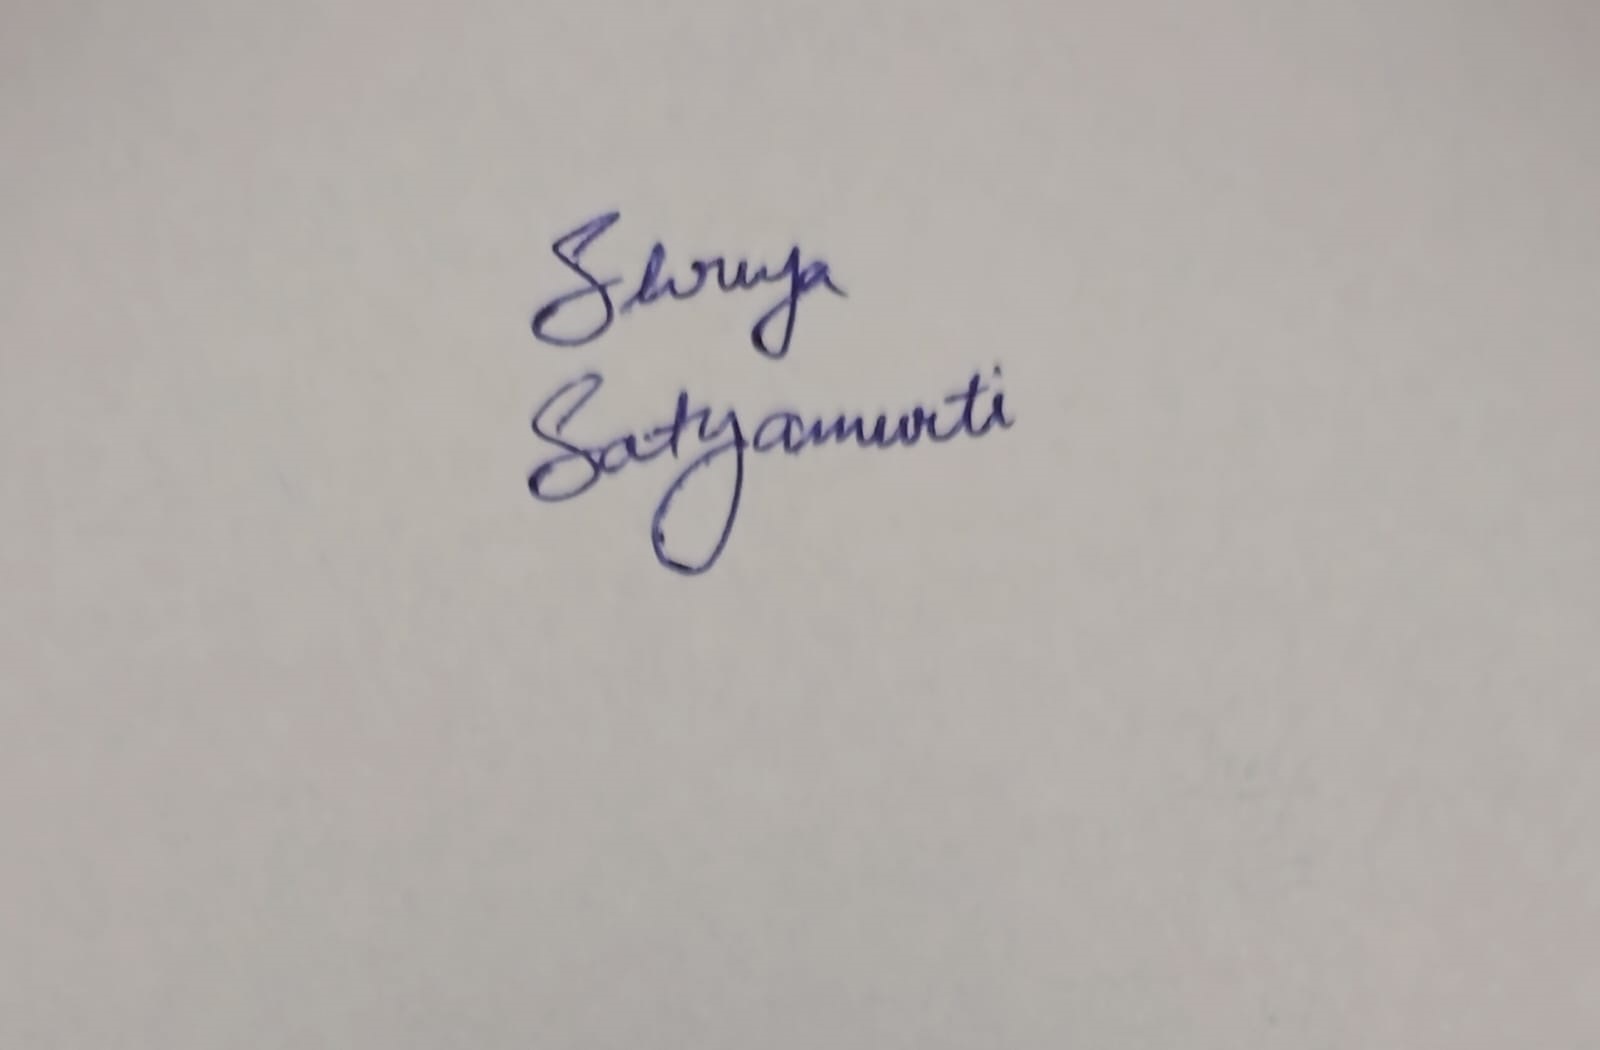 Shruya
Satyamurti